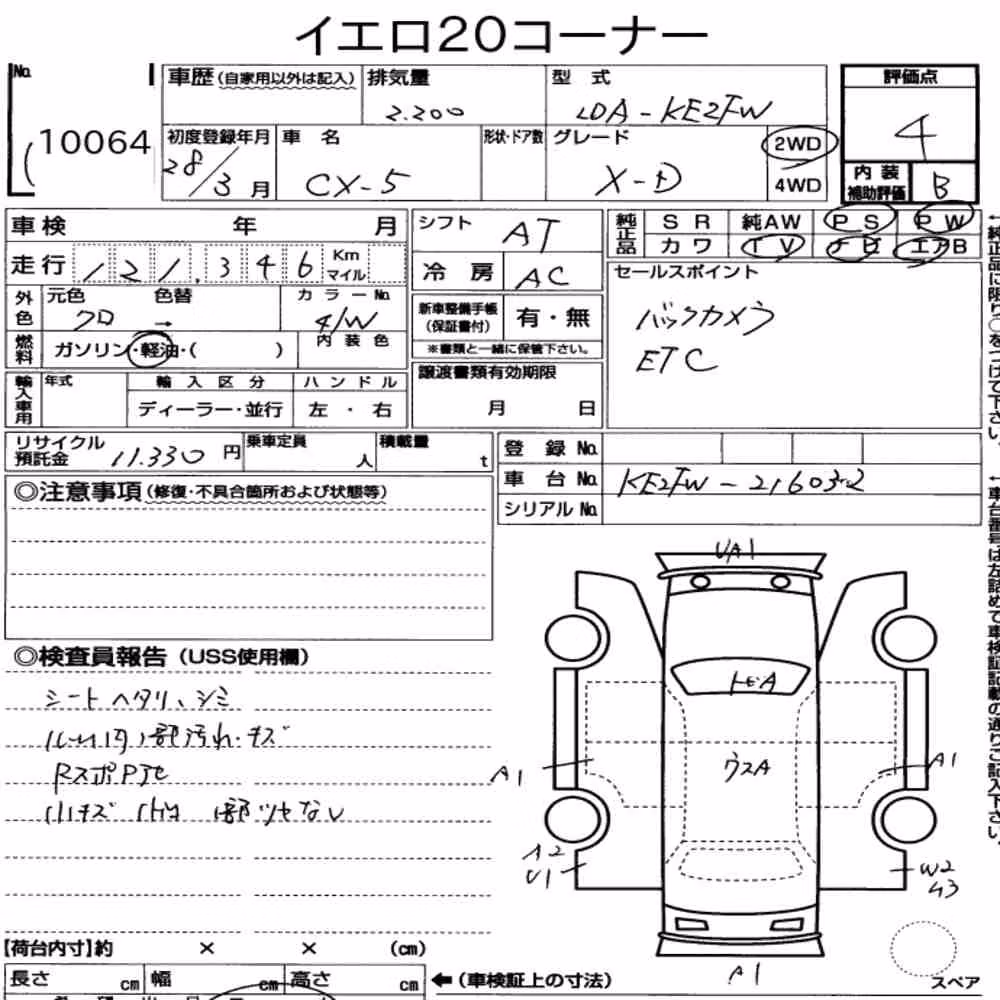 イエロ20コーナー
No. 10064
車歴(自家用以外は記入) 排気量 2.200 型式 LDA-KE2FW
評価点 4
初度登録年月 28/3月 車名 CX-5 形状・ドア数 グレード X-D 2WD 4WD
内装補助評価 B
車検 年 月
シフト AT
純正品 SR 純AW PS PW
カワ TV ナビ エアB
走行 121,346 Km マイル
冷房 AC
セールスポイント
バックカメラ
ETC
外色 元色 クロ 色替 → カラーNo. 41W
新車整備手帳(保証書付) 有・無
※書類と一緒に保管下さい。
燃料 ガソリン・軽油・( ) 内装色
譲渡書類有効期限
月 日
輸入車用 年式 輸入区分 ハンドル
ディーラー・並行 左・右
リサイクル預託金 11.330円 乗車定員 人 積載量 t
登録No.
車台No. KE2FW-216032
シリアルNo.
◎注意事項(修復・不具合箇所および状態等)
◎検査員報告(USS使用欄)
シートヘタリ、シミ
汚れ・キズ
小キズ
UA1
トビA
ウスA
A1
A1
A2
U1
W2
A1
スペア
【荷台内寸】約 × × (cm)
長さ cm 幅 cm 高さ cm
←(車検証上の寸法)
←純正品に限り○をつけて下さい。
←車台番号は左詰めで車検証記載の通りご記入下さい。